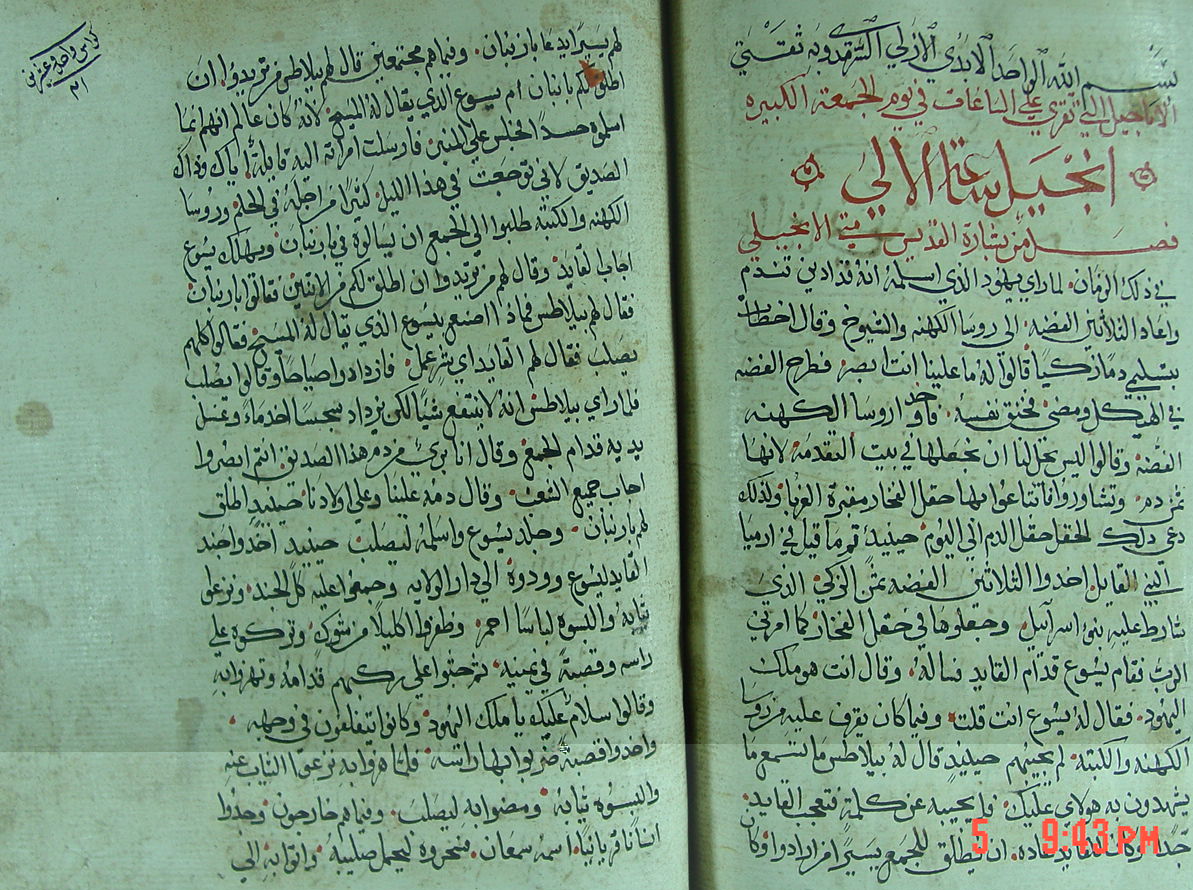 بسم الله الواحد الابدى الازلي السرمدى وبه ثقتي
الاناجيل التي تقري علي الساعات في يوم الجمعة الكبيره
انجيل ساعة الاولي
فصل من بشارة القديس متي الانجيلي
في ذلك الزمان لما راي يهودا الذي اسلمه انه قد ادين تندم
واعاد الثلاثين الفضه الى روسا الكهنه والشيوخ وقال اخطات
بتسليمي دمًا زكيًا قالوا له ما علينا انت ابصر فطرح الفضه
في الهيكل ومضى فخنق نفسه فاخدوا روسا الكهنه
الفضه وقالوا ليس تحل لنا ان نجعلها في بيت التقدمه لانها
ثمن دم وتشاوروا فابتاعوا بها حقل الفخار مقبرة الغربا ولذلك
دعي ذلك الحقل حقل الدم الى اليوم حينيد تم ما قيل في ارميا
النبي القايل اخدوا الثلاثين الفضه ثمن الزكي الذي
شارط عليه بني اسرآييل وجعلوها في حقل الفخار كما امرني
الرب فقام يسوع قدام القايد فساله وقال انت هو ملك
اليهود فقال له يسوع انت قلت وفيما كان يقرف عليه من روسا
الكهنه والكتبه لم يجيبهم حينيدٍ قال له بيلاطس ما تسمع ما
يشهدون به هولاي عليك ولم يجيبه عن كلمة فتعجب القايد
جدًا وكان للقايد عاده ان يطلق للجمع يسيرًا من ارادوا وكان
كراس واحد وعشرين
٢١
لهم يسيرًا يدعا بارنبان وفيما هم مجتمعين قال لهم بيلاطس من تريدوا ان
اطلق لكم بارنبان ام يسوع الذي يقال له المسيح لانه كان عالم انهم انما
اسلموه حسدًا فجلس علي المنبر فارسلت امراته اليه قايلة اياك وذاك
الصديق لاني توجعت في هذا الليل كثيرًا من اجله في الحلم وروسا
الكهنه والكتبة طلبوا الي الجمع ان يسالوه في بارنبان ويهلك يسوع
اجاب القايد وقال لهم من تريدوا ان اطلق لكم من الاتنين فقالوا بارنبان
فقال لهم بيلاطس فماذا اصنع بيسوع الذي يقال له المسيح فقالوا كلهم
يصلب فقال لهم القايد اي شرٍ عمل فازدادوا صياحًا وقالوا يصلب
فلما راي بيلاطس انه لا ينتفع شيًا لكن يزداد سجسًا اخد ماءً وغسل
يديه قدام الجمع وقال انا بري من دم هذا الصديق انتم ابصروا
اجاب جميع الشعب وقال دمه علينا وعلي اولادنا حينيدٍ اطلق
لهم بارنبان وجلد يسوع واسلمه ليصلب حينيدٍ اخدوا جند
القايد ليسوع وودوه الي دار الولايه وجمعوا عليه كل الجند ونزعوا
ثيابه والبسوه لباسًا احمر وظفروا اكليلًا من شوك وتركوه علي
راسه وقصبةً في يمينه ثم جثوا علي ركبهم قدامه وتهزوا به
وقالوا سلام عليك يا ملك اليهود وكانوا يتفلون في وجهه
واخدوا قصبة ضربوا بها راسه فلما هزوا به نزعوا الثياب عنه
والبسوه ثيابه ومضوا به ليصلب وفيما هم خارجون وجدوا
انسانًا قريانيًا اسمه سمعان فسخروه ليحمل صليبه واتوا به الي
5 9:43 PM